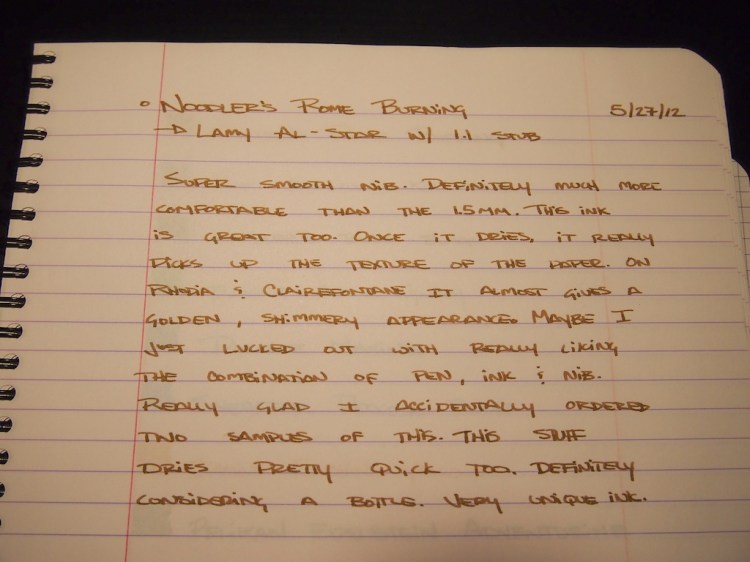 ° Noodler's Rome Burning 5/27/12
→ Lamy Al-Star w/ 1.1 stub
Super smooth nib. Definitely much more
comfortable than the 1.5mm. This ink
is great too. Once it dries, it really
picks up the texture of the paper. On
Rhodia & Clairefontaine it almost gives a
golden, shimmery appearance. Maybe I
just lucked out with really liking
the combination of pen, ink & nib.
Really glad I accidentally ordered
two samples of this. This stuff
dries pretty quick too. Definitely
considering a bottle. Very unique ink.